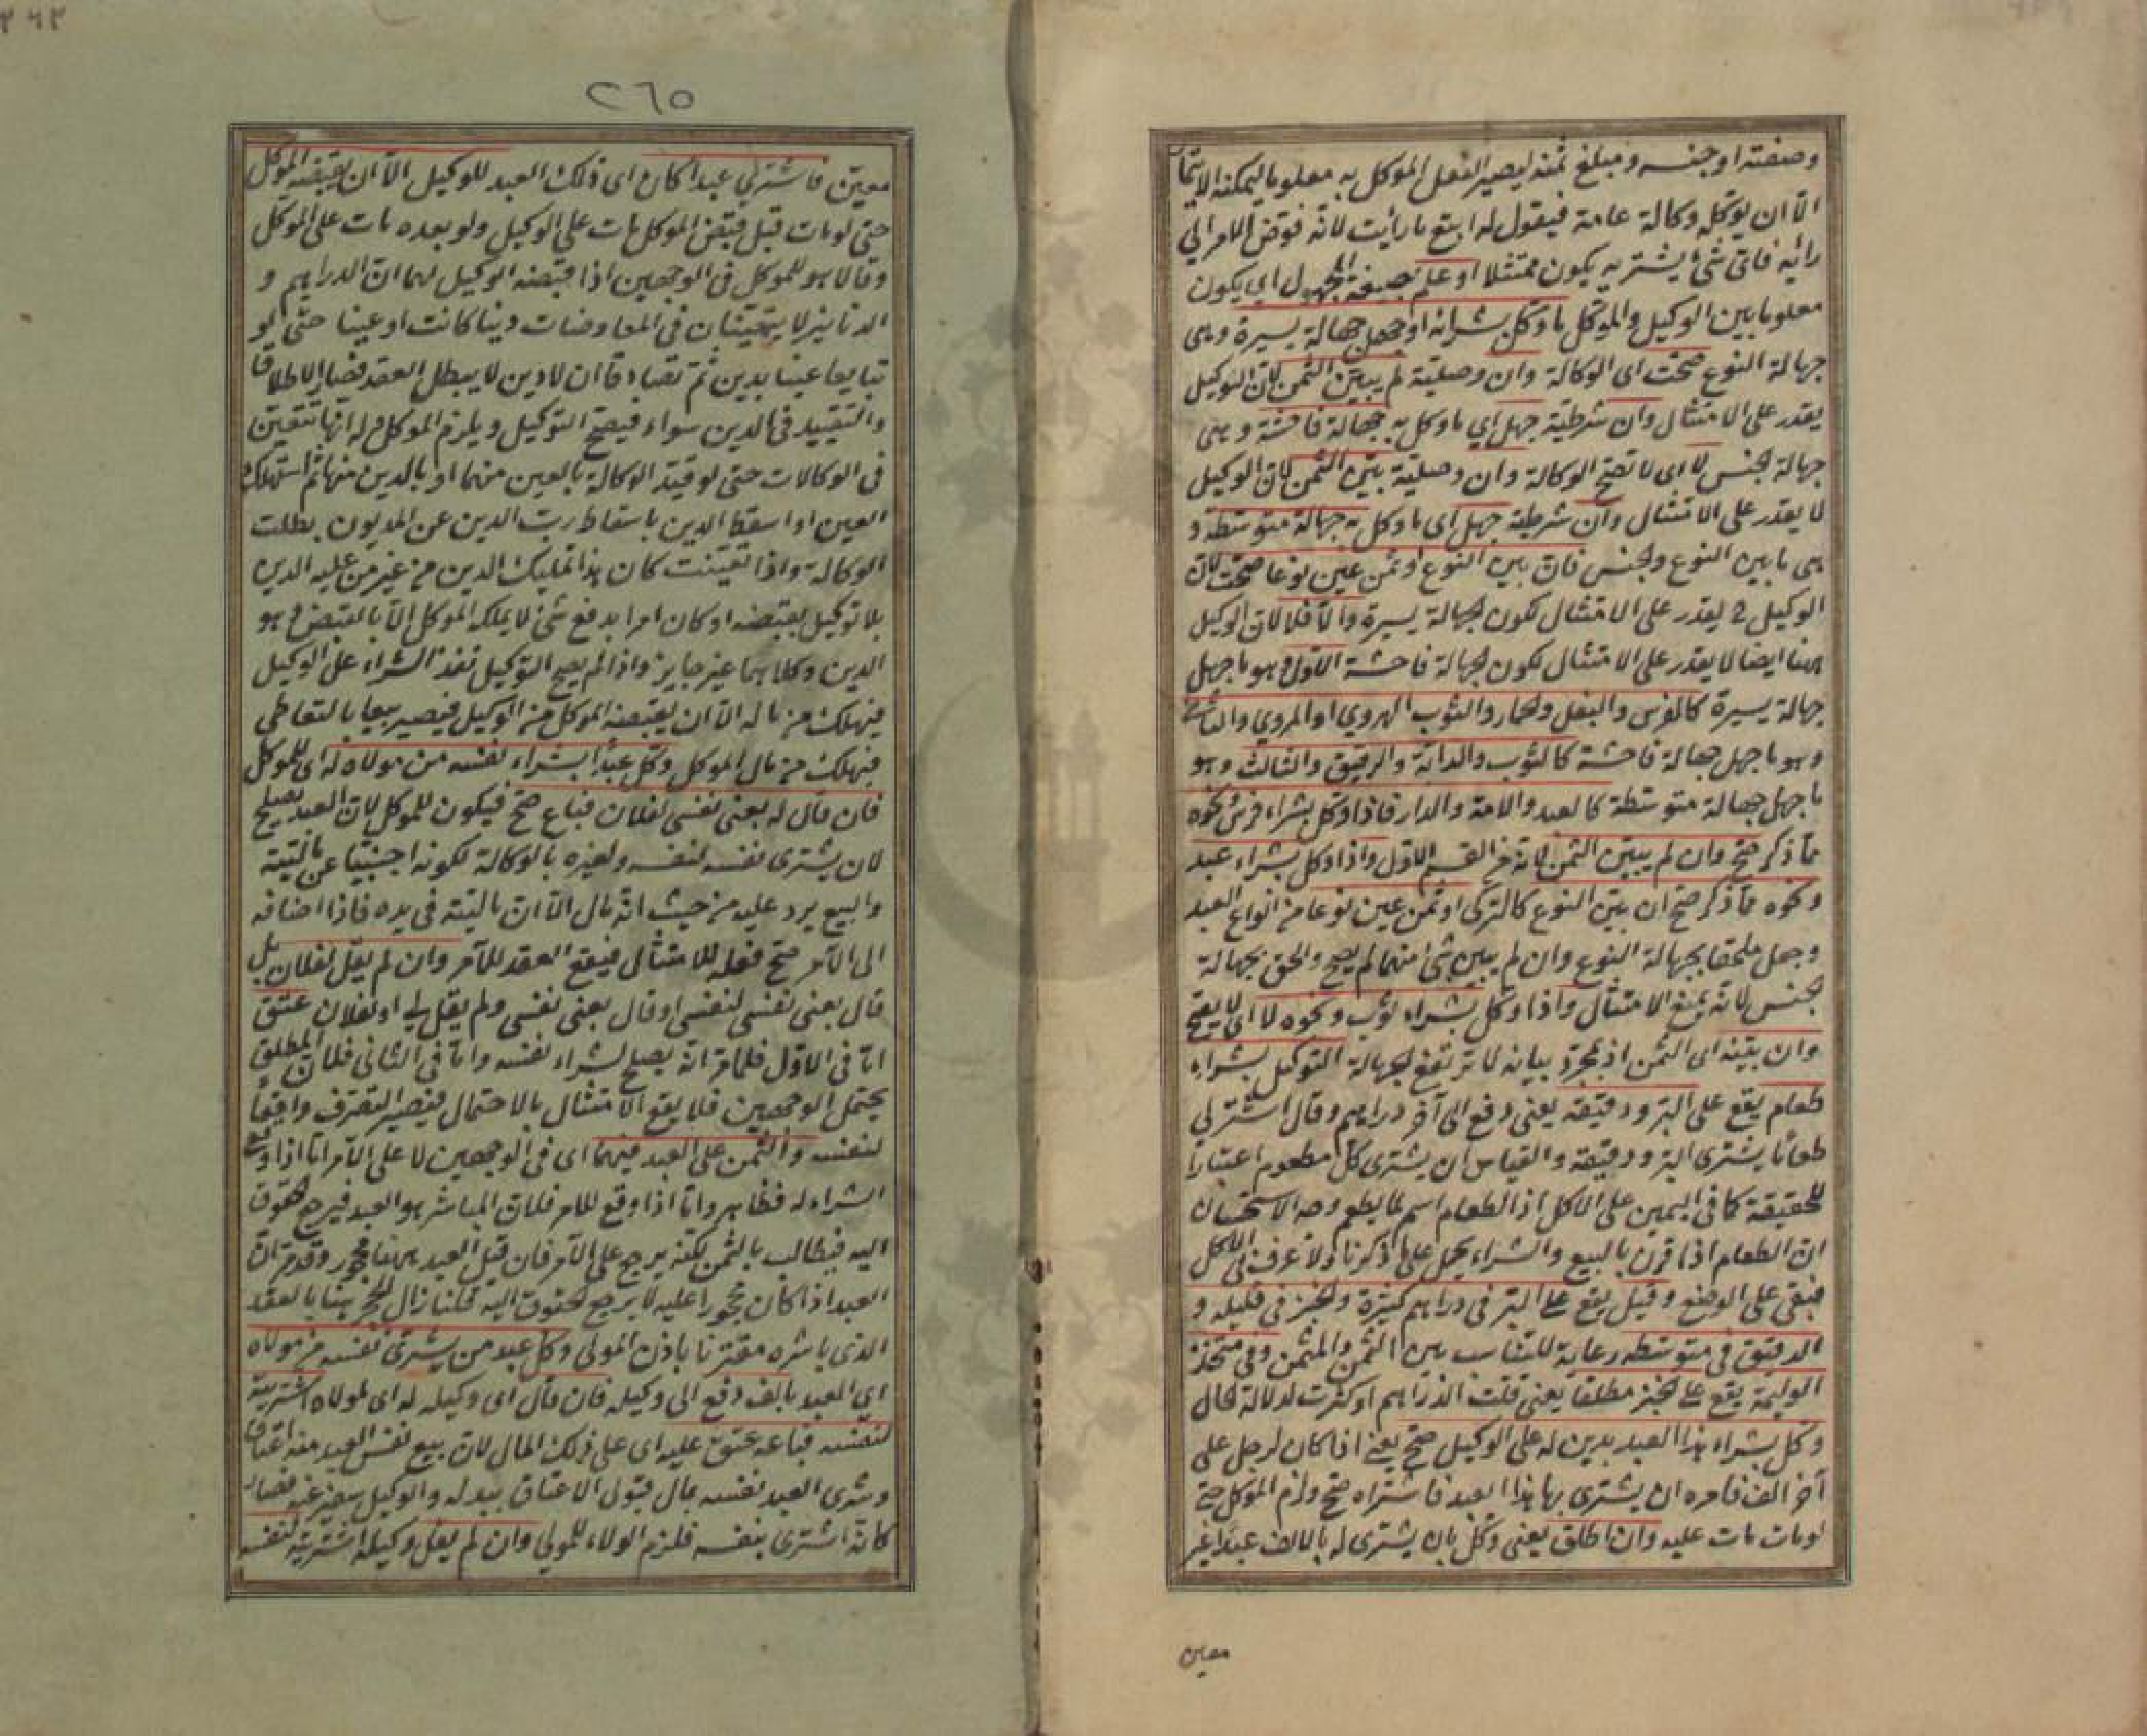 وصفته او جنسه ومبلغ ثمنه ليصير الفعل الموكل به معلوما ليمكنه الايتمار
الا ان يوكله وكالة عامة فيقول له ابتع ما رأيت لانه فوض الامر الى
رائه فاى شئ يشتريه يكون ممتثلا او علم بصيغة المجهول اى يكون
معلوما بين الوكيل والموكل ما وكل بشرائه او جهل جهالة يسيرة وهى
جهالة النوع صحت اى الوكالة وان وصلية لم يبين الثمن لان الوكيل
يقدر على الامتثال وان شرطية جهل اى ما وكل به جهالة فاحشة وهى
جهالة الجنس لا اى لا تصح الوكالة وان وصلية بين الثمن لان الوكيل
لا يقدر على الامتثال وان شرطية جهل اى ما وكل به جهالة متوسطة و
هى ما بين النوع والجنس فان بين النوع او ثمن عين نوعا صحت لان
الوكيل ح يقدر على الامتثال لكون الجهالة يسيرة والا فلا لان الوكيل
ههنا ايضا لا يقدر على الامتثال لكون الجهالة فاحشة الاول وهو ما جهل
جهالة يسيرة كالفرس والبغل والحمار والثوب الهروي او المروي والثانى
وهو ما جهل جهالة فاحشة كالثوب والدابة والرقيق والثالث وهو
ما جهل جهالة متوسطة كالعبد والامة والدار فاذا وكل بشراء فرس ونحوه
مما ذكر صح وان لم يبين الثمن لانه من القسم الاول واذا وكل بشراء عبد
ونحوه مما ذكر صح ان بين النوع كالتركى او ثمن عين نوعا من انواع العبد
وجعل ملحقا بجهالة النوع وان لم يبين شئ منهما لم يصح والحق بجهالة
الجنس لانه يمنع الامتثال واذا وكل بشراء ثوب ونحوه لا اى لا يصح
وان بينه اى الثمن اذ بمجرد بيانه لا ترتفع الجهالة التوكيل بشراء
طعام يقع على البر ودقيقه يعنى دفع الى آخر دراهم وقال اشتر لى
طعاما يشترى البر ودقيقه والقياس ان يشترى كل مطعوم اعتبارا
للحقيقة كما فى اليمين على الاكل اذ الطعام اسم لما يطعم وجه الاستحسان
ان الطعام اذا قرن بالبيع والشراء يحمل على ما ذكرنا ولا عرف فى الاكل
فبقى على الوضع وقيل يقع على البر فى دراهم كثيرة والخبز فى قليله و
الدقيق فى متوسطه رعاية للتناسب بين الثمن والمثمن وفى متخذ
الوليمة يقع على الخبز مطلقا يعنى قلت الدراهم او كثرت لدلالة الحال
وكل بشراء هذا العبد بدين له على الوكيل صح يعنى اذا كان لرجل على
آخر الف فامره ان يشترى بها هذا العبد فاشتراه صح ولزم الموكل حتى
لو مات مات عليه وان اطلق يعنى وكل بان يشترى له بالالف عبدا غير
معين
٢٦٥
معين فاشترى عبدا كان اى ذلك العبد للوكيل الا ان يقبضه الموكل
حتى لو مات قبل قبض الموكل مات على الوكيل ولو بعده مات على الموكل
وقالا هو للموكل فى الوجهين اذا قبضه الوكيل لهما ان الدراهم و
الدنانير لا يتعينان فى المعاوضات دينا كانت او عينا حتى لو
تبايعا عينا بدين ثم تصادقا ان لا دين لا يبطل العقد فصار الاطلاق
والتقييد فى الدين سواء فيصح التوكيل ويلزم الموكل وله انها تتعين
فى الوكالات حتى لو قيد الوكالة بالعين منهما او بالدين منها ثم استهلك
العين او اسقط الدين باسقاط رب الدين عن المديون بطلت
الوكالة واذا تعينت كان هذا تمليك الدين من غير من عليه الدين
بلا توكيل بقبضه او كان امرا بدفع شئ لا يملكه الموكل الا بالقبض وهو
الدين وكلاهما غير جايز واذا لم يصح التوكيل نفذ الشراء على الوكيل
فيهلك من ماله الا ان يقبضه الموكل من الوكيل فيصير بيعا بالتعاطى
فيهلك من مال الموكل وكل عبدا بشراء نفسه من مولاه له اى للموكل
فان قال له بعنى نفسى لفلان فباع صح فيكون للموكل لان العبد يصلح
لان يشترى نفسه لنفسه ولغيره بالوكالة لكونه اجنبيا عن مالية
والبيع يرد عليه من حيث انه مال الا ان ماليته فى يده فاذا اضافه
الى الآمر صح فعله للامتثال فيقع العقد للآمر وان لم يقل لفلان بل
قال بعنى نفسى لنفسى او قال بعنى نفسى ولم يقل لى او لفلان عتق
اما فى الاول فلما مر انه يصلح لشراء نفسه واما فى الثانى فلان المطلق
يحتمل الوجهين فلا يقع الامتثال بالاحتمال فيصير التصرف واقعا
لنفسه والثمن على العبد فيهما اى فى الوجهين لا على الآمر اما اذا وقع
الشراء له فظاهر واما اذا وقع للامر فلان المباشر هو العبد فيرجع الحقوق
اليه فيطالب بالثمن لكنه يرجع على الآمر فان قيل العبد ههنا محجور وقد مر ان
العبد اذا كان محجورا عليه لا يرجع الحقوق اليه قلنا زال الحجر هنا بالعقد
الذى باشره مقترنا باذن المولى وكل عبد من يشترى نفسه من مولاه
اى العبد بالف دفع الى وكيله فان قال اى وكيله له اى لمولاه اشتريته
لنفسه فباعه عتق عليه اى على ذلك المال لان بيع نفس العبد منه اعتاق
وشرى العبد نفسه بمال قبول الاعتاق ببدله والوكيل سفير عنه فصار
كانه اشترى بنفسه فلزم الولاء للمولى وان لم يقل وكيله اشتريته لنفسه